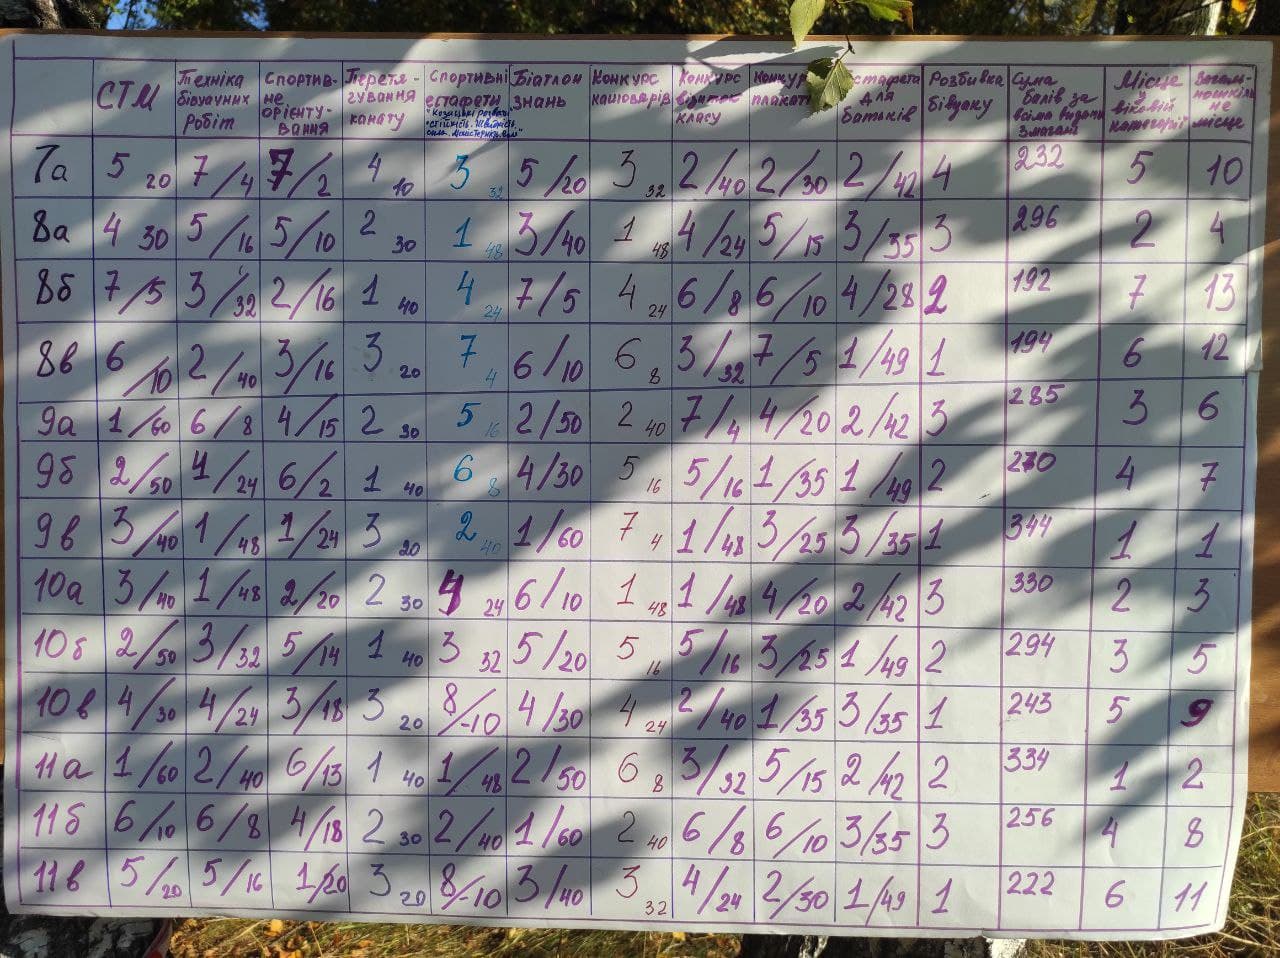 СТМ | Техніка бівуачних робіт | Спортив-не орієнту-вання | Перетя-гування канату | Спортивні естафети | Біатлон знань | Конкурс кашоварів | Конкурс візиток класу | Конкурс плакатів | естафета для батьків | Розбивка бівуаку | Сума балів за всіма видами змагань | Місце у віковій категорії | Загаль-ношкіль не місце
7а | 5 20 | 7/4 | 7/2 | 4 10 | 3 32 | 5/20 | 3 32 | 2/40 | 2/30 | 2/42 | 4 | 232 | 5 | 10
8а | 4 30 | 5/16 | 5/10 | 2 30 | 1 48 | 3/40 | 1 48 | 4/24 | 5/15 | 3/35 | 3 | 296 | 2 | 4
8б | 7/5 | 3/32 | 2/16 | 1 40 | 4 24 | 7/5 | 4 24 | 6/8 | 6/10 | 4/28 | 2 | 192 | 7 | 13
8в | 6/10 | 2/40 | 3/16 | 3 20 | 7 4 | 6/10 | 6 8 | 3/32 | 7/5 | 1/49 | 1 | 194 | 6 | 12
9а | 1/60 | 6/8 | 4/15 | 2 30 | 5 16 | 2/50 | 2 40 | 7/4 | 4/20 | 2/42 | 3 | 285 | 3 | 6
9б | 2/50 | 4/24 | 6/2 | 1 40 | 6 8 | 4/30 | 5 16 | 5/16 | 1/35 | 1/49 | 2 | 270 | 4 | 7
9в | 3/40 | 1/48 | 1/24 | 3 20 | 2 40 | 1/60 | 7 4 | 1/48 | 3/25 | 3/35 | 1 | 344 | 1 | 1
10а | 3/40 | 1/48 | 2/20 | 2 30 | 4 24 | 6/10 | 1 48 | 1/48 | 4/20 | 2/42 | 3 | 330 | 2 | 3
10б | 2/50 | 3/32 | 5/14 | 1 40 | 3 32 | 5/20 | 5 16 | 5/16 | 3/25 | 1/49 | 2 | 294 | 3 | 5
10в | 4/30 | 4/24 | 3/18 | 3 20 | 8/-10 | 4/30 | 4 24 | 2/40 | 1/35 | 3/35 | 1 | 243 | 5 | 9
11а | 1/60 | 2/40 | 6/13 | 1 40 | 1/48 | 2/50 | 6 8 | 3/32 | 5/15 | 2/42 | 2 | 334 | 1 | 2
11б | 6/10 | 6/8 | 4/18 | 2 30 | 2/40 | 1/60 | 2 40 | 6/8 | 6/10 | 3/35 | 3 | 256 | 4 | 8
11в | 5/20 | 5/16 | 1/20 | 3 20 | 8/-10 | 3/40 | 3 32 | 4/24 | 2/30 | 1/49 | 1 | 222 | 6 | 11